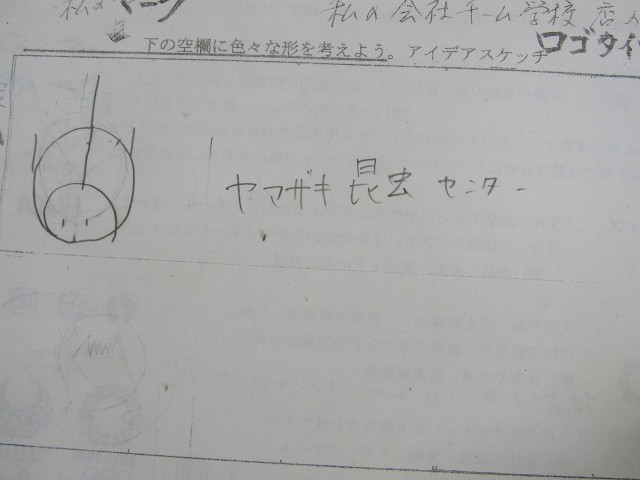 私のマーク
私の会社チーム学校店
下の空欄に色々な形を考えよう。アイデアスケッチ ロゴタイ
ヤマザキ昆虫センター